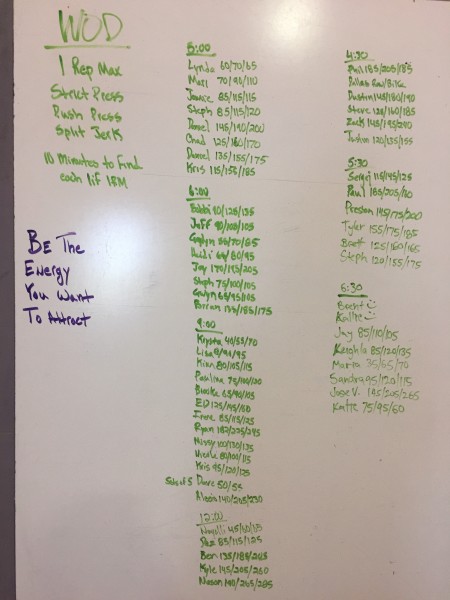 WOD
1 Rep Max
Strict Press
Push Press
Split Jerk
10 Minutes to Find
each lif 1RM
BE The
Energy
You Want
To Attract
5:00
Lynda 60/70/65
70/90/110
Jamie 85/115/115
Steph 85/115/120
Daniel 145/190/200
Chad 125/160/170
Daniel 135/155/175
Kris 115/155/185
6:00
Bobbi 90/125/135
Jeff 90/100/105
55/70/65
60/80/95
Jay 170/195/205
Steph 75/100/105
Gwyn 65/95/105
135/185/175
9:00
Krysta 40/55/70
Lisa
Kim 80/105/115
Paulina 75/110/120
65/90/105
ED 125/145/160
Irene 85/115/125
Ryan 182/225/245
Missy 100/130/135
Nicole 80/100/115
Kris 95/120/125
Sets of 5 Dave 50/55
Alexis 140/205/230
12:00
45/60/65
85/115/125
Ben 135/185/205
Kyle 195/205/260
Mason 190/265/285
4:30
Phil 185/205/185
Dallas Row/Bike
Dustin 145/180/190
Steve 125/160/185
Zack 145/195/240
Justin 120/135/155
5:30
Sergej 115/145/125
Paul 185/205/210
Preston 145/175/200
Tyler 155/175/185
Brett 125/160/165
Steph 120/155/175
6:30
Becht
Kallie
Jay 85/110/105
85/120/135
Maria 35/65/70
Sandra 95/120/115
Jose V. 195/205/265
Katie 75/95/60